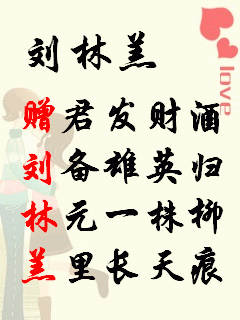 love
刘林羔
赠君发财酒
刘备雄英归
林元一株柳
羔里长天痕